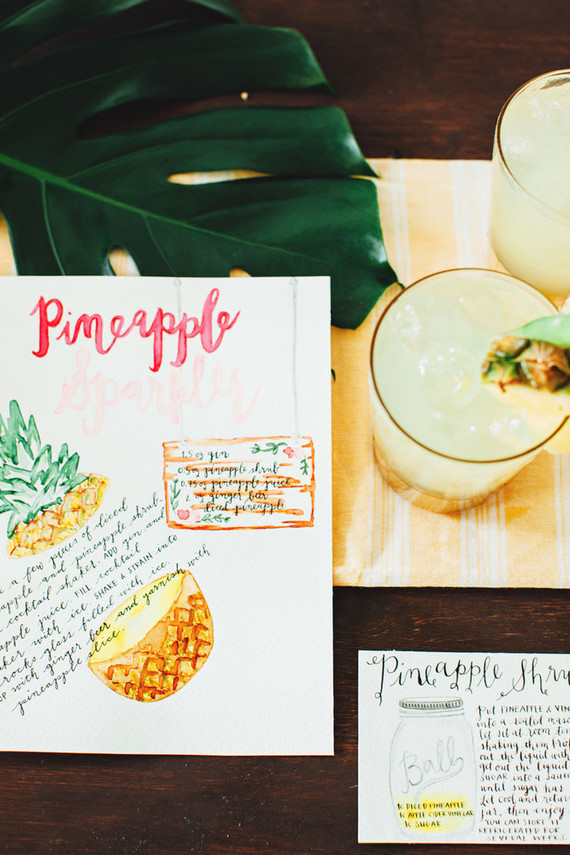 Pineapple
Sparkler
1.5 oz gin
0.5 oz pineapple shrub
0.75 oz pineapple juice
2 oz ginger beer
diced pineapple
a few pieces of diced
apple and pineapple shrub
cocktail shaker. ADD gin and
apple juice. FILL cocktail
aker with ice. SHAKE & STRAIN into
rocks glass filled with ice.
op with ginger beer and garnish with
pineapple slice.
Pineapple Shru
Put PINEAPPLE & VIN
into a sealed mason
let sit at room tem
shaking them
out the liquid with
get out the liquid
SUGAR into a sauce
until sugar has
let cool and retur
jar, then enjoy
YOU CAN STORE IT
REFRIGERATED FOR
SEVERAL WEEKS.
Ball
1C DICED PINEAPPLE
1C APPLE CIDER VINEGAR
1C SUGAR